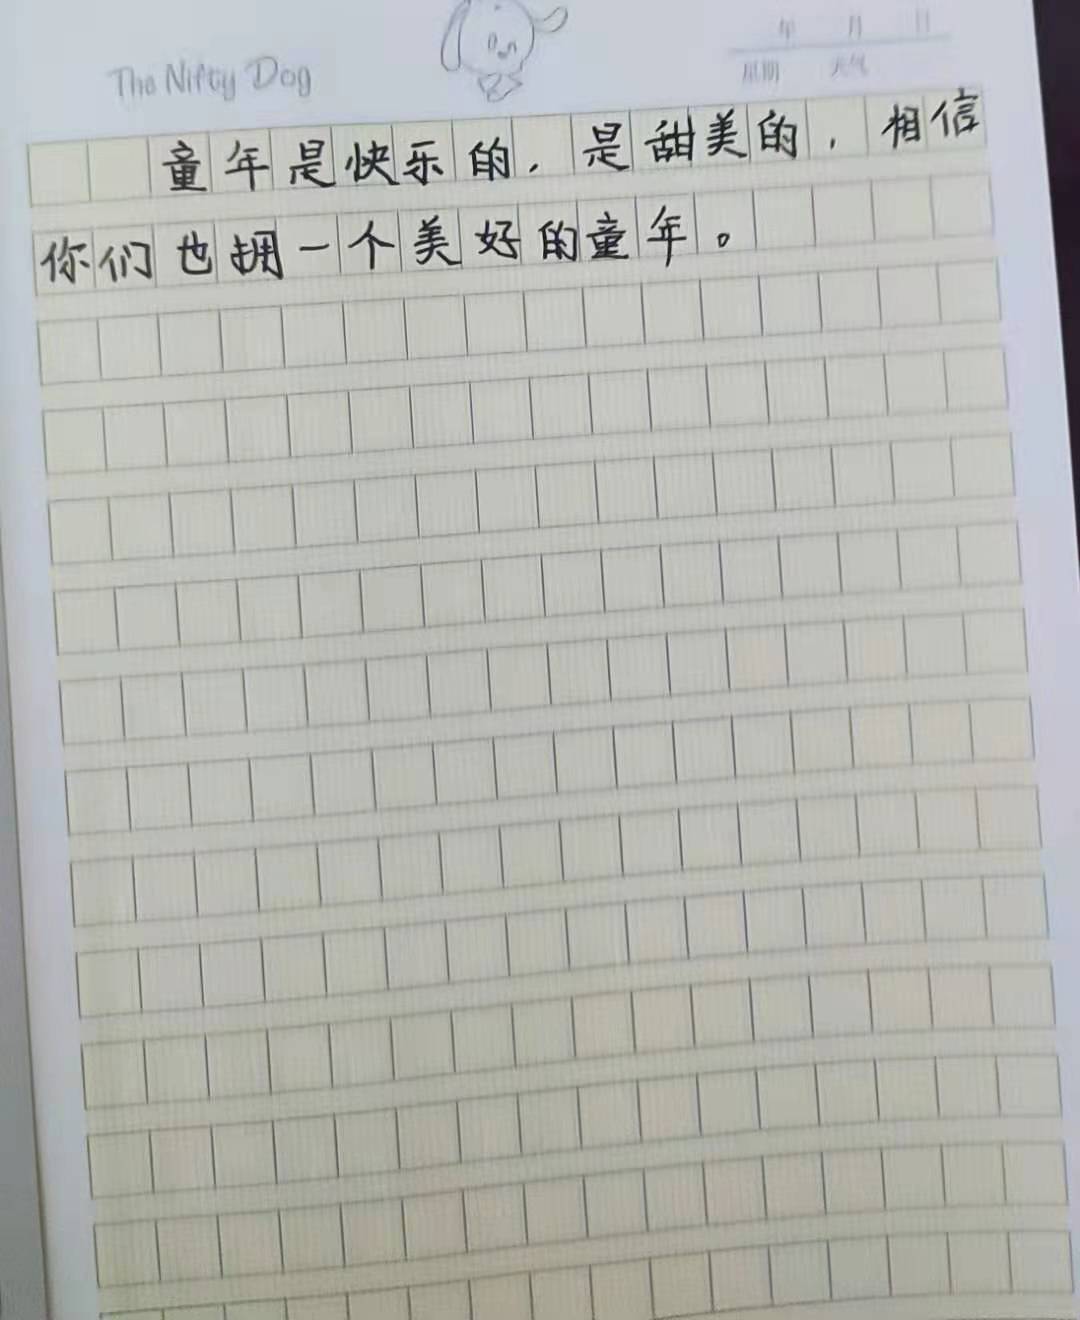 The Nifty Dog
年 月 日
星期 天气
童年是快乐的，是甜美的，相信
你们也拥一个美好的童年。